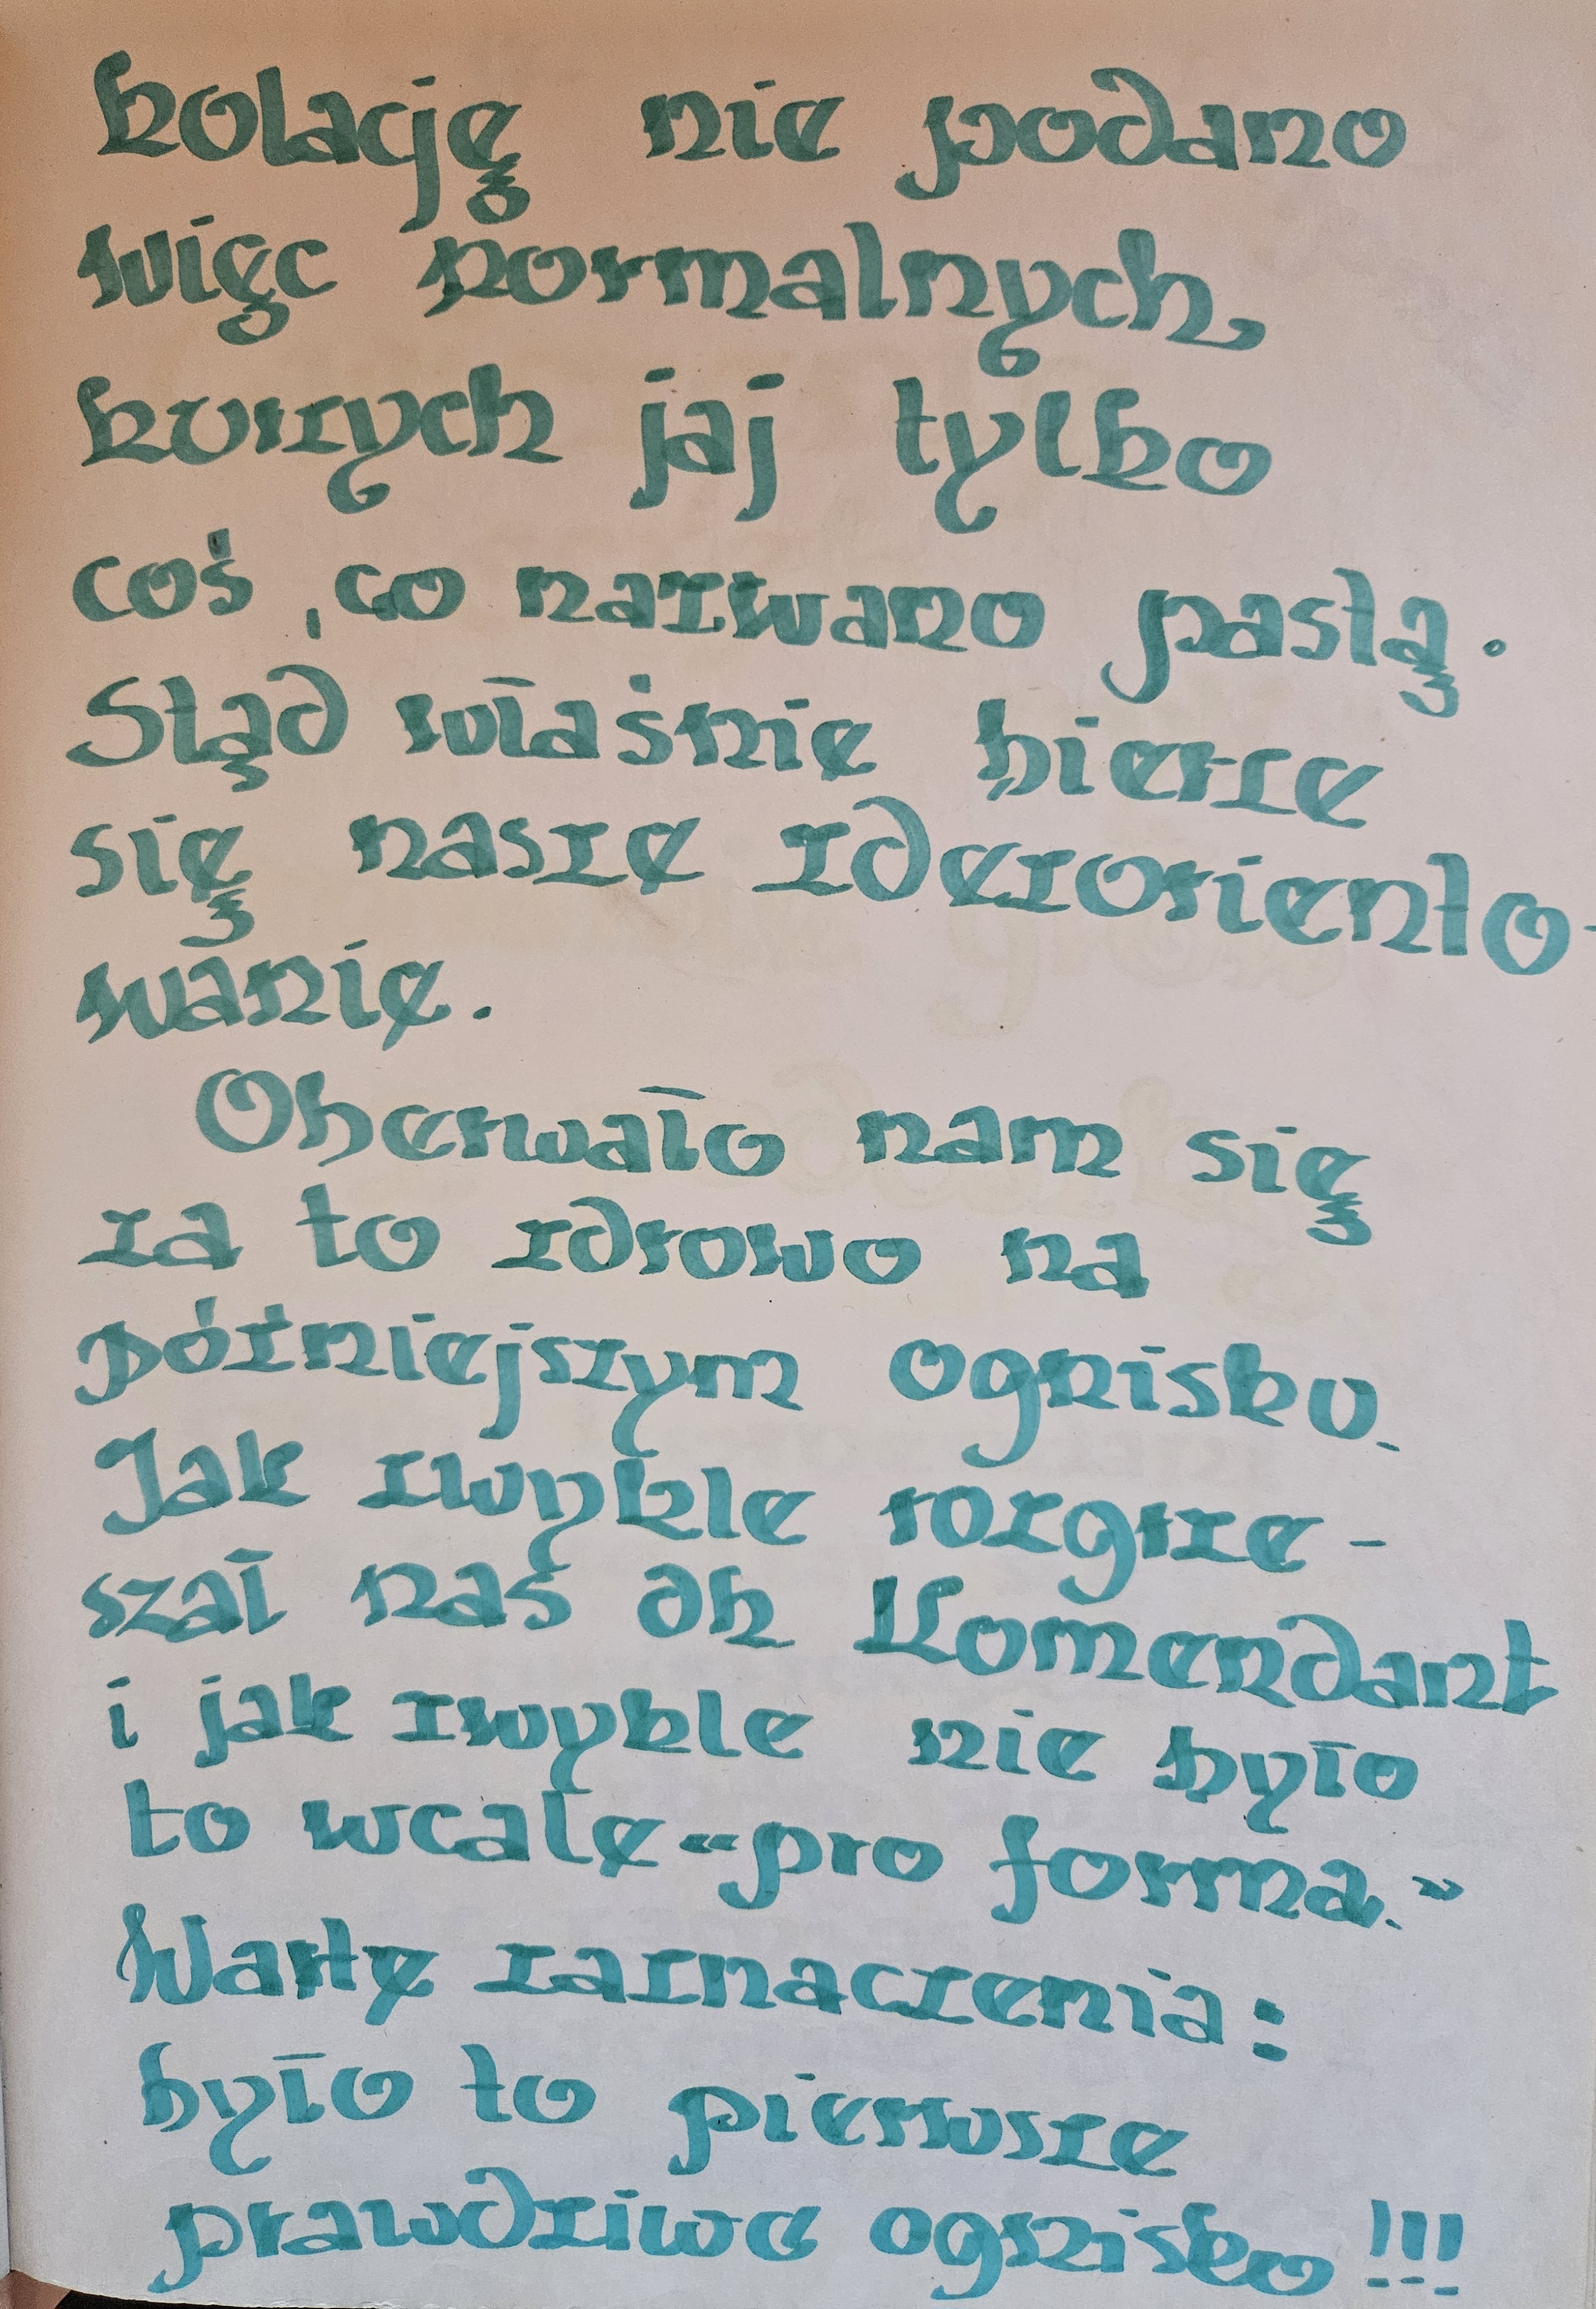 kolację nie podano
więc normalnych,
kurzych jaj tylko
coś, co nazwano pastą.
Stąd właśnie bierze
się nasze zdezoriento-
wanie.
Oberwało nam się
za to zdrowo na
późniejszym ognisku.
Jak zwykle rozgrze-
szał nas dh Komendant
i jak zwykle nie było
to wcale "pro forma."
Warte zaznaczenia:
było to pierwsze
prawdziwe ognisko!!!